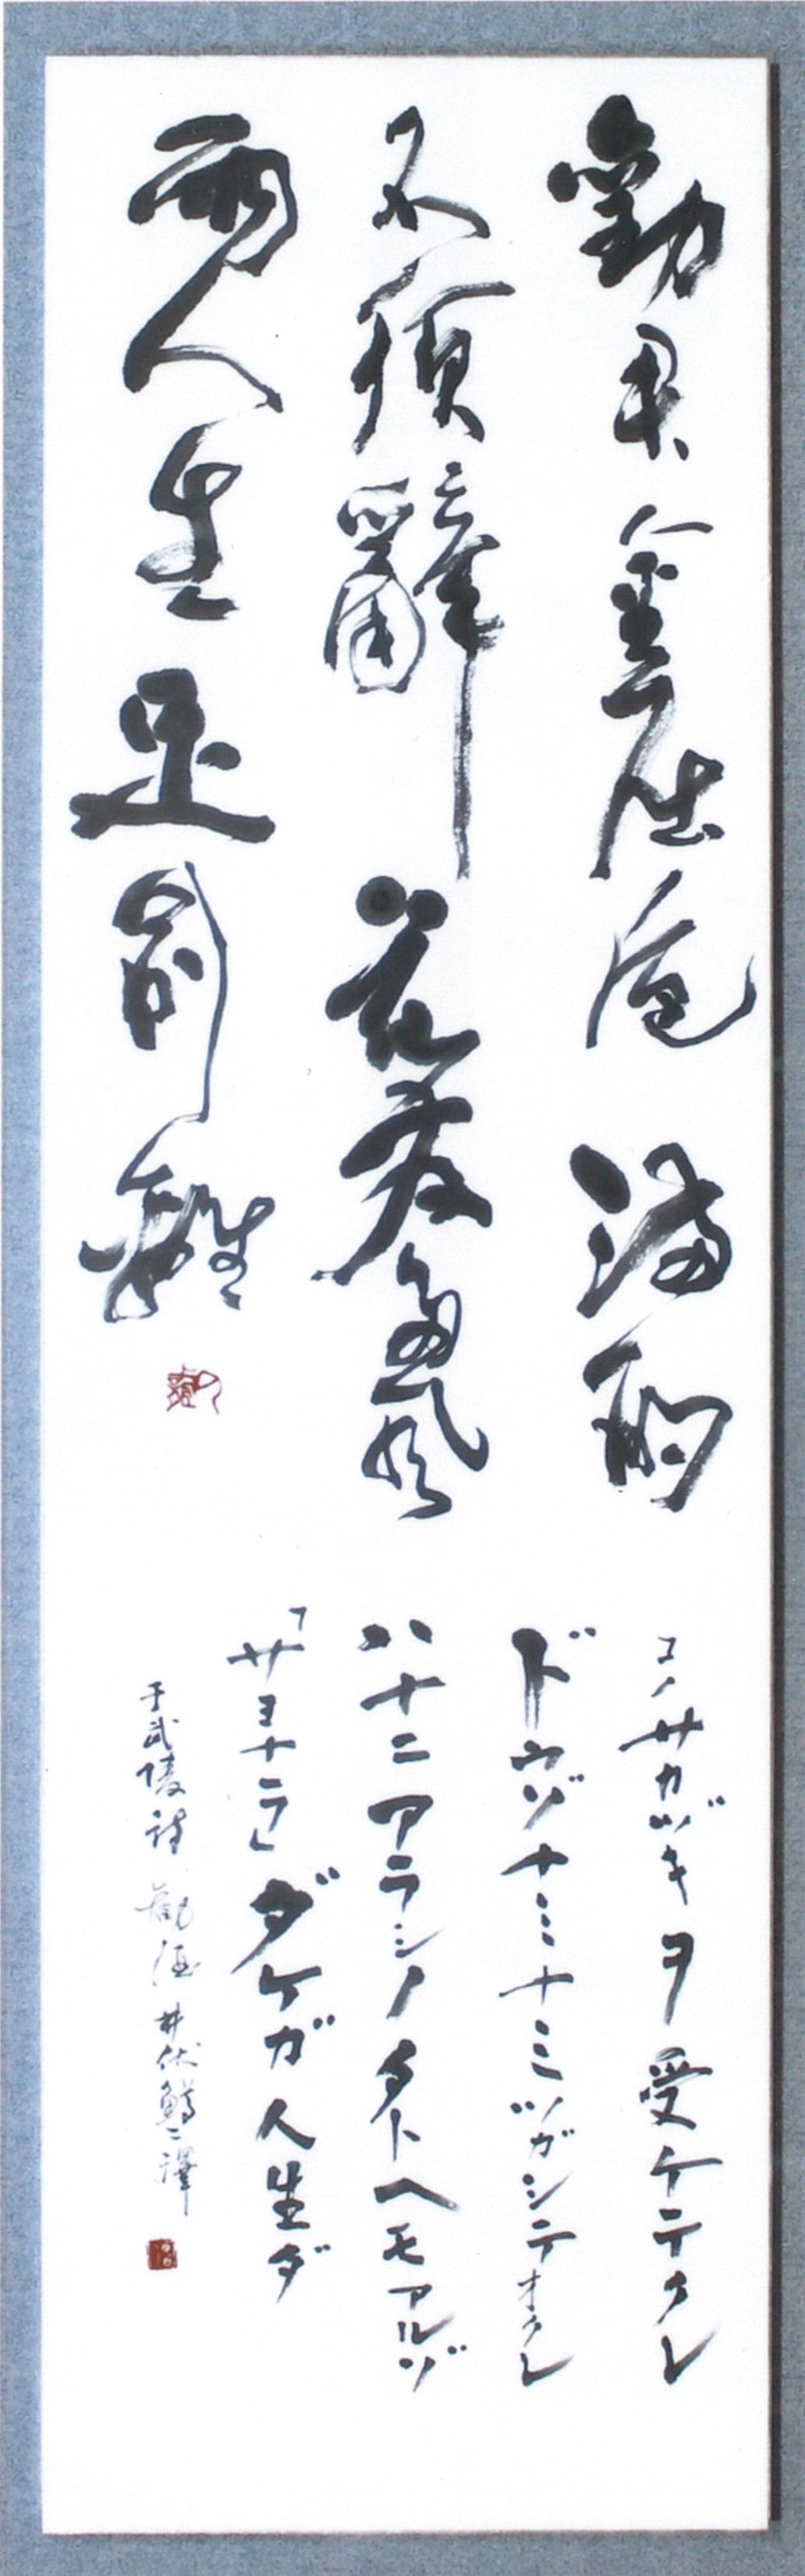 勸君金屈卮 滿酌
不須辭 花發多風
雨人生足別離
コノサカヅキヲ受ケテクレ
ドウゾナミナミツガシテオクレ
ハナニアラシノタトヘモアルゾ
「サヨナラ」ダケガ人生ダ
于武陵詩 勧酒 井伏鱒二譯